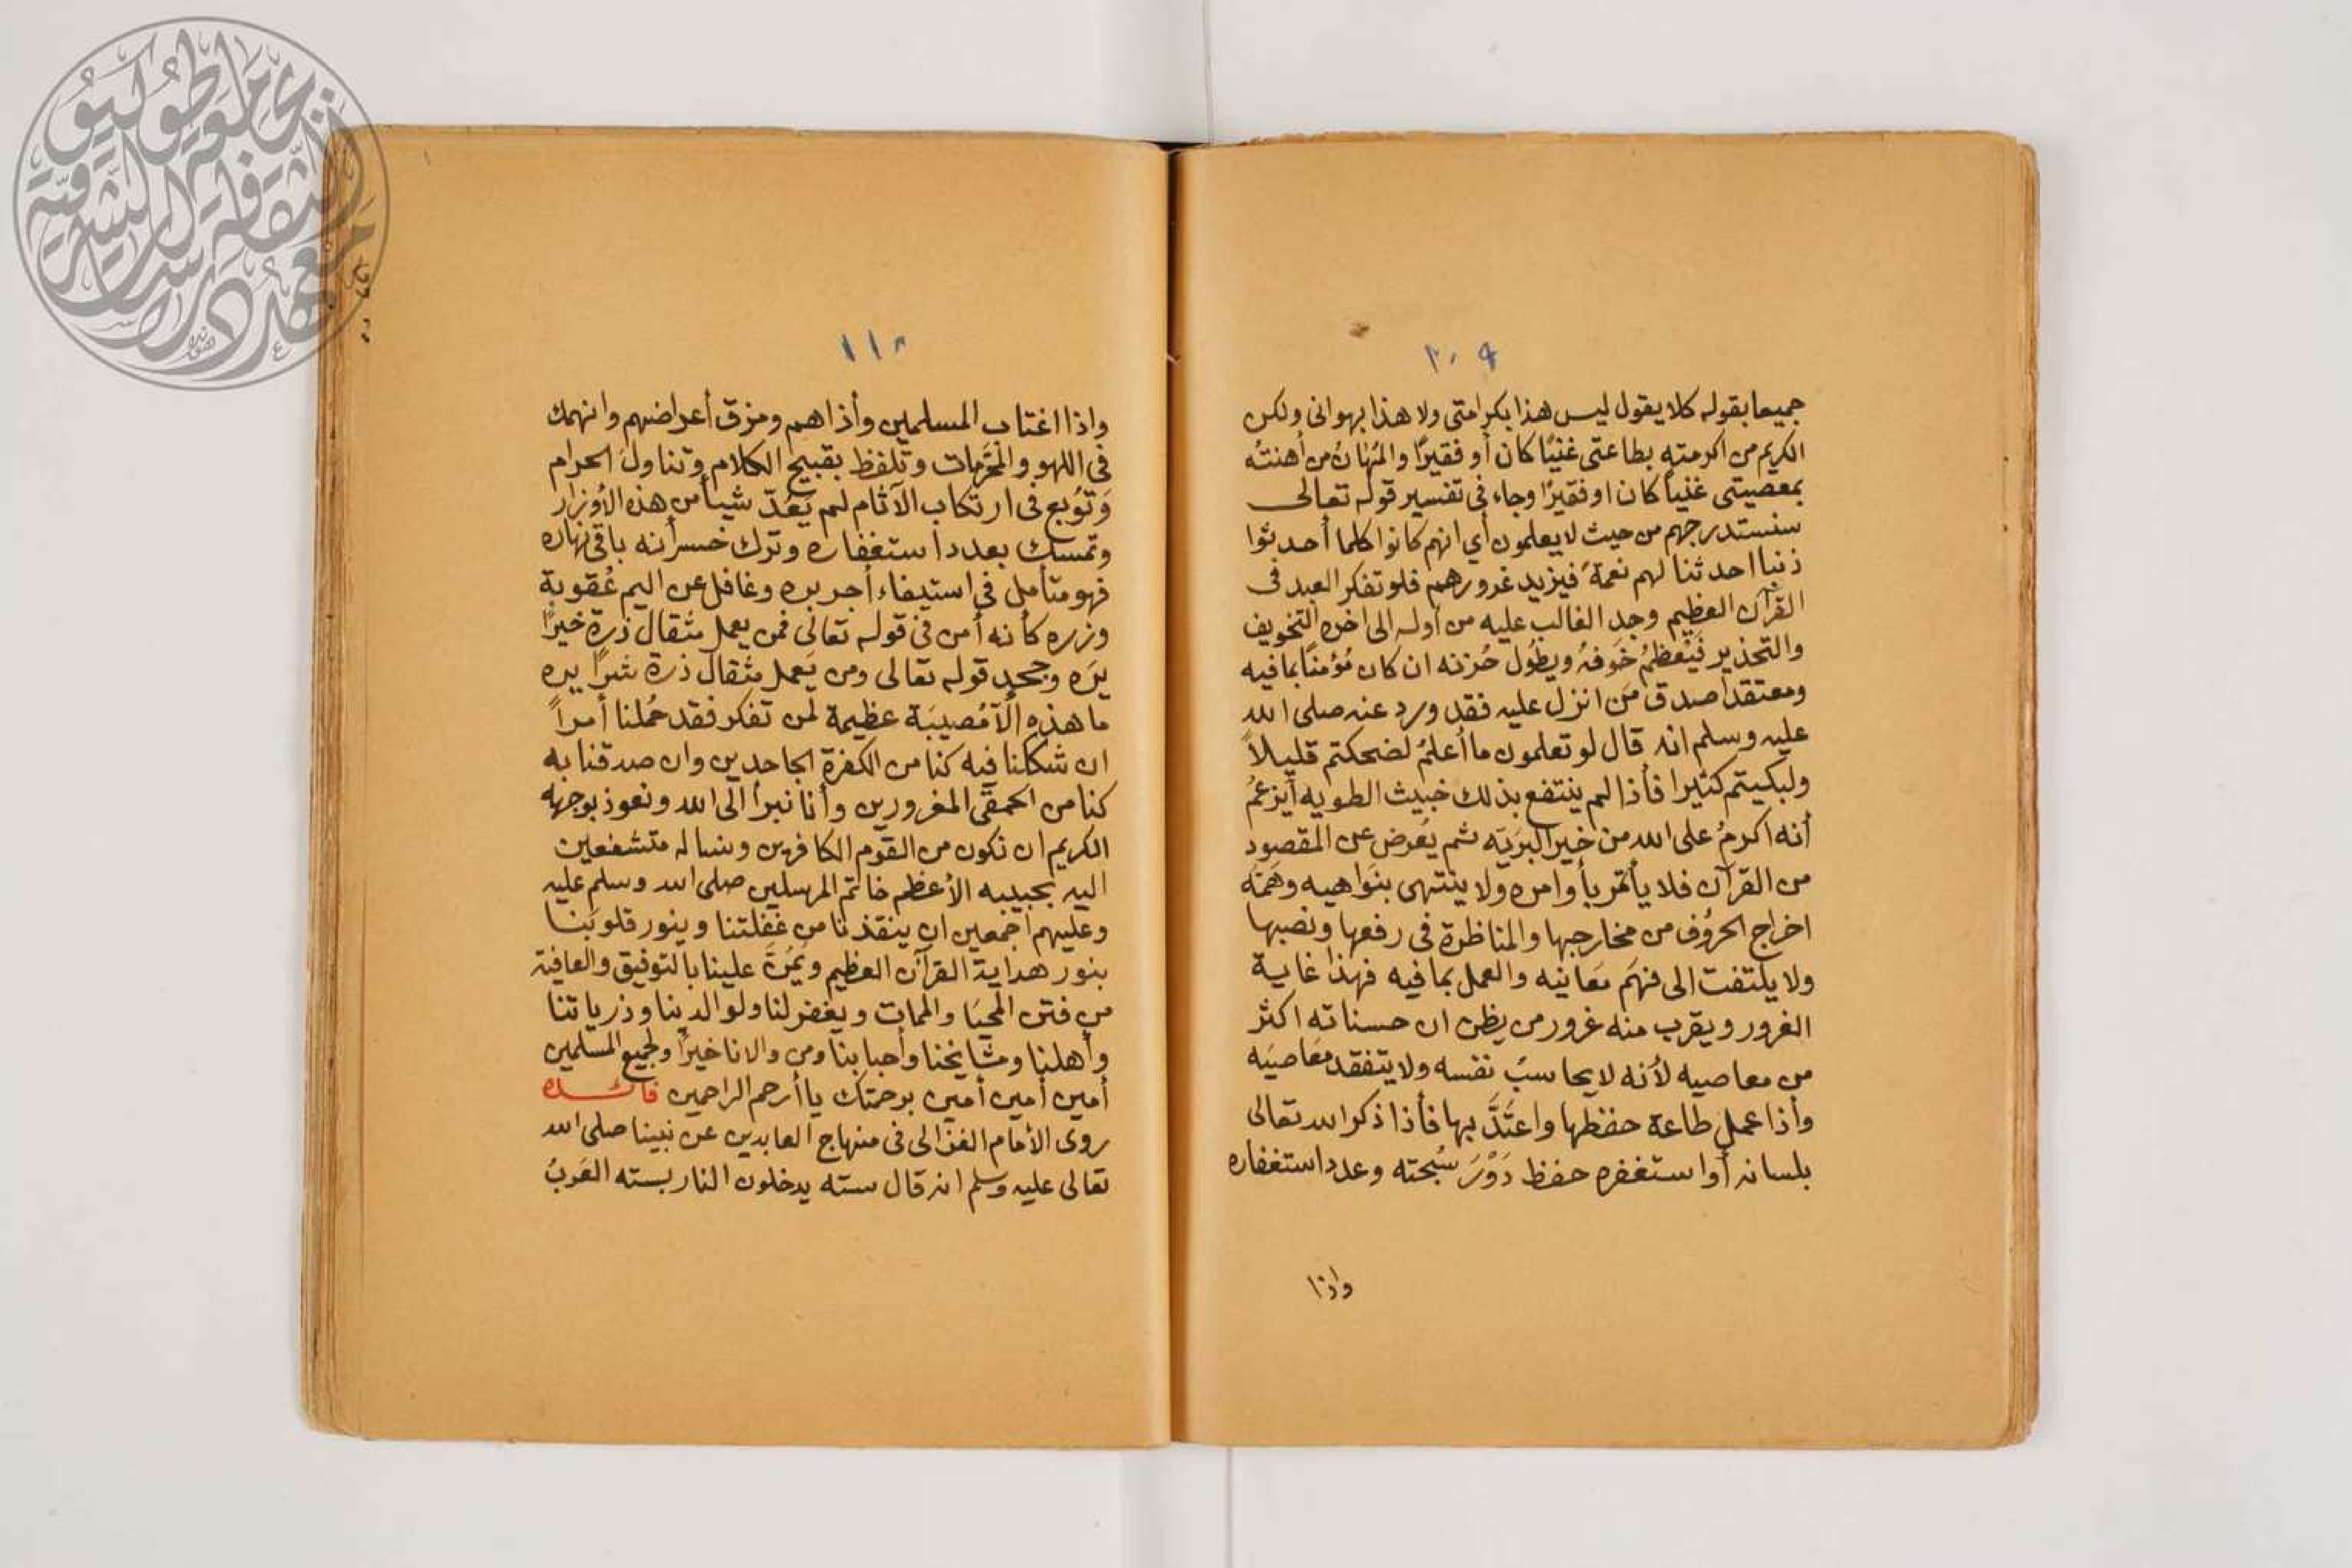 ٢٠٩
جميعا بقوله كلا يقول ليس هذا بكرامتى ولا هذا بهوانى ولكن
الكريم من اكرمته بطاعتى غنيًا كان أو فقيرًا والمُهَانُ من أهنتُه
بمعصيتى غنياً كان او فقيرًا وجاء فى تفسير قوله تعالى
سنستدرجهم من حيث لا يعلمون أي انهم كانوا كلما أحدثوا
ذنبا احدثنا لهم نعمةً فيزيد غرورهم فلو تفكر العبد فى
القرآن العظيم وجد الغالب عليه من أوله الى اخره التخويف
والتحذير فَيَعظمُ خَوفهُ ويطُول حُزنه ان كان مُؤمنًا بما فيه
ومعتقداً صدق من انزل عليه فقد ورد عنه صلى الله
عليه وسلم انه قال لو تعلمون ما أعلمُ لضحكتم قليلاً
ولبكيتم كثيرا فأذا لم ينتفع بذلك خبيث الطويه أيزعمُ
أنه اكرمُ على الله من خير البرَيّه ثم يُعرض عن المقصود
من القرآن فلا يأتمر بأوامره ولا ينتهى بنَواهيه وهَمّه
اخراج الحرُوف من مخارجها والمناظرة فى رفعها ونصبها
ولا يلتفت الى فَهمَ مَعانيه والعمل بما فيه فهذا غاية
الغرور ويقرب منه غرور من يظن ان حسناته اكثر
من معاصيه لأنه لا يحاسبُ نفسه ولا يتفقد مَعَاصيَه
وأذا عمل طاعة حفظها واعتَدَّ بها فأذا ذكر الله تعالى
بلسانه أو استغفره حفظ دَوْرَ سُبحته وعدد استغفاره
واذا
١١٠
واذا اغتاب المسلمين وأذاهم ومزق أعراضهم وانهمك
فى اللهو والمحَرّمات وتلفظ بقبيح الكلام وتناولَ الحرام
وَتوُبع فى ارتكاب الآثام لم يَعُدّ شيأً من هذه الأوزار
وتمسك بعدد استغفاره وترك خسرانه باقى نهاره
فهو متأمل فى استيفاء أجر بره وغافل عن اليم عُقوبة
وزره كأنه أمن فى قوله تعالى فمن يعمل مثقال ذرة خيرًا
يرَه وجحد قوله تعالى ومن يَعمل مثقال ذرة شرًا يره
ما هذه الآ مُصيبَة عظيمة لمن تفكر فقد حُملنا أمراً
ان شككنا فيه كنا من الكفرة الجاحدين وان صدقنا به
كنا من الحمقَى المغرورين وأنا نبرأ الى الله ونعوذ بوجهه
الكريم ان نكون من القوم الكافرين ونسأله متشفعين
اليه بحبيبه الأعظم خاتم المرسلين صلى الله وسلم عليه
وعليهم اجمعين ان ينقذنا من غَفلتنا وينور قلوبَنا
بنور هداية القرآن العظيم ويَمُنَّ علينا بالتوفيق والعافية
من فتن المحيَا والممات ويغفر لنا ولوالدينا وذرياتنا
وأهلنا ومشايخنا وأحبابنا ومن والانا خيراً ولجميع المسلمين
أمين أمين أمين برحمتك يا أرحم الراحمين فائده
روى الأمام الغزالى فى منهاج العابدين عن نبينا صلى الله
تعالى عليه وسلم انه قال سته يدخلون النار بسته العَربُ